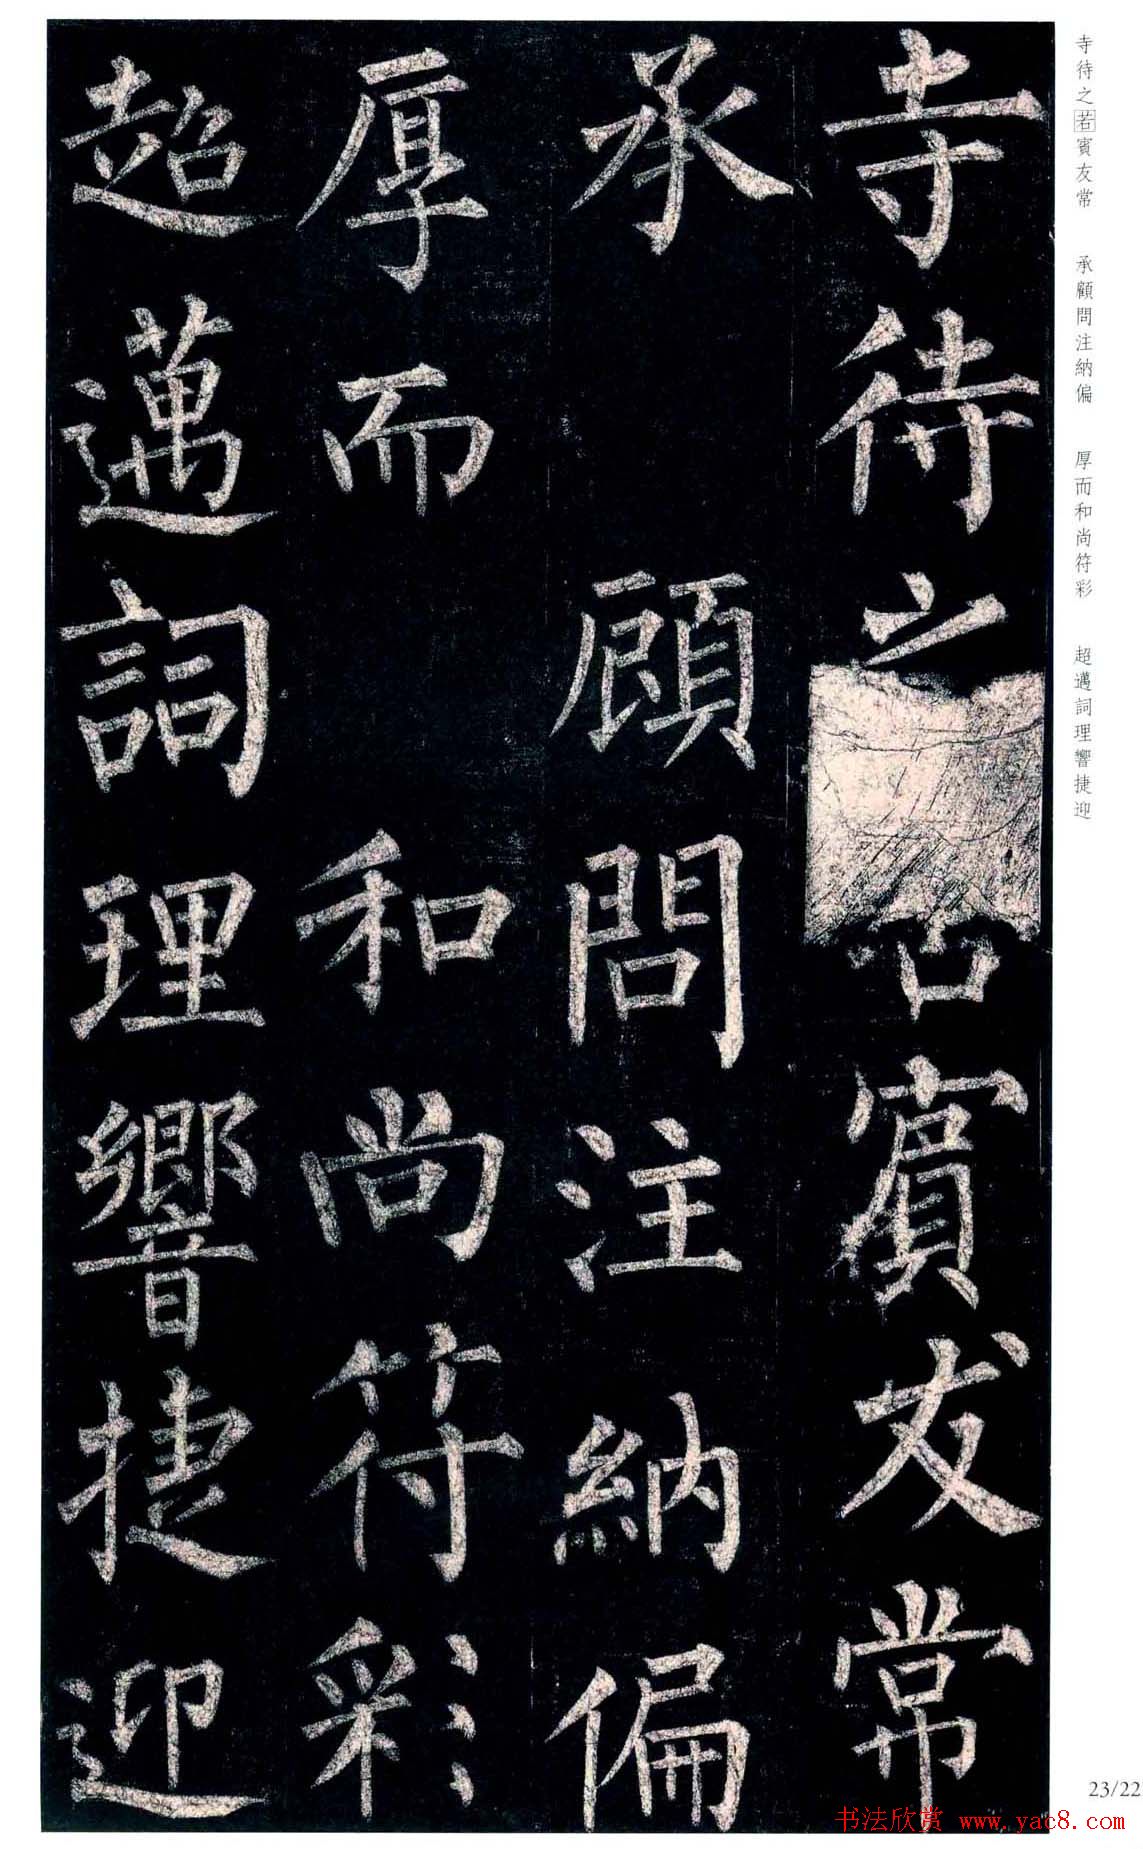 寺待之若賓友常
承顧問注納偏
厚而和尚符彩
超邁詞理響捷迎
寺待之若賓友常
承顧問注納偏
厚而和尚符彩
超邁詞理響捷迎
23/22
书法欣赏 www.yac8.com